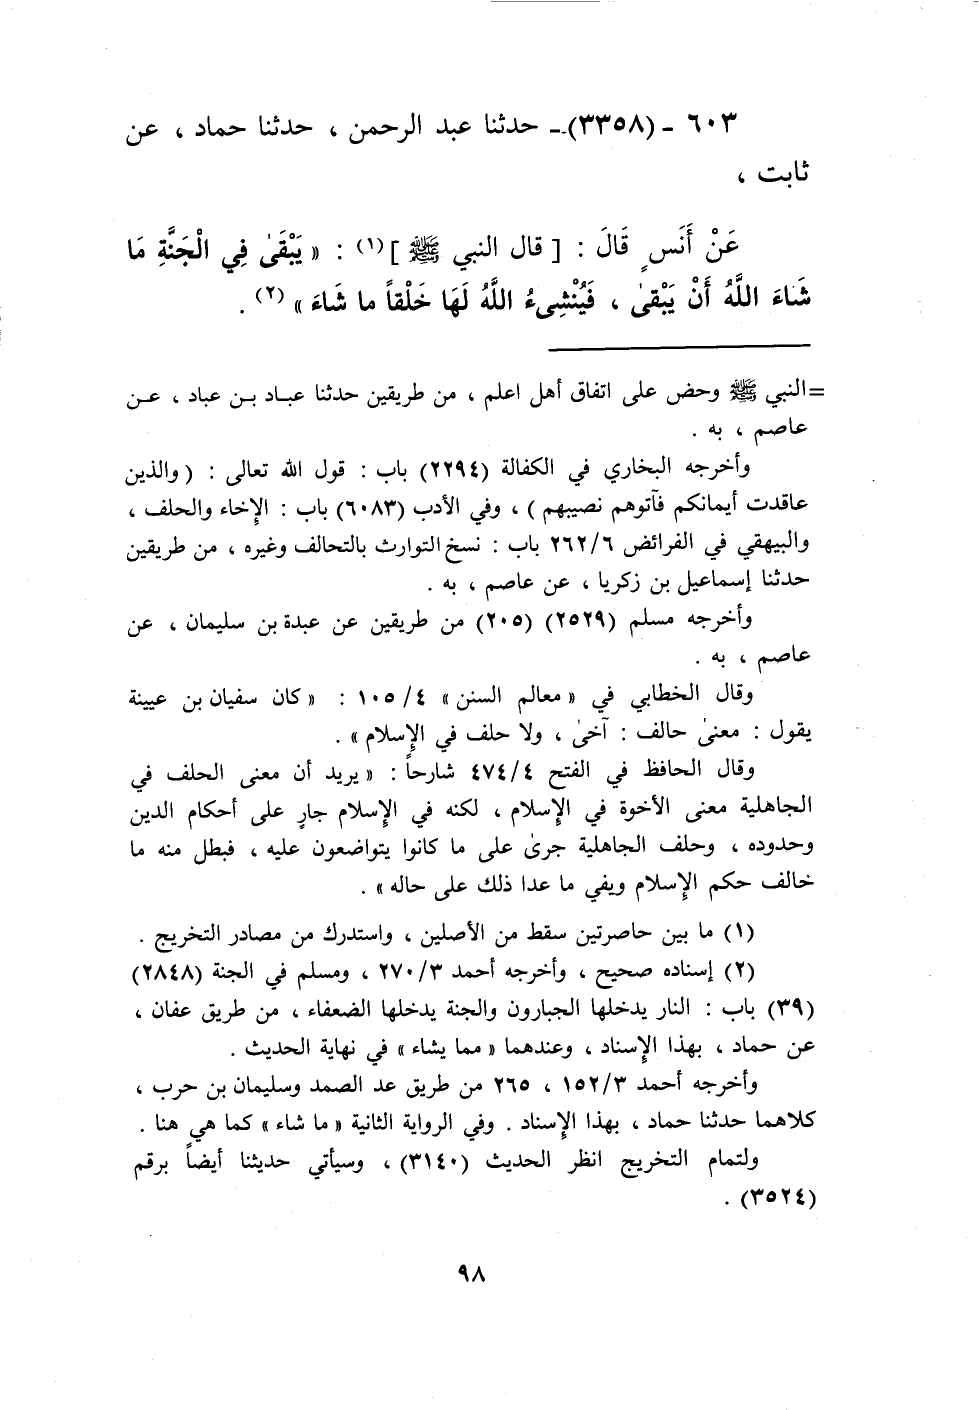 ٦٠٣ - (٣٣٥٨)- حدثنا عبد الرحمن ، حدثنا حماد ، عن
ثابت ،
عَنْ أَنَسٍ قَالَ : [ قال النبي ﷺ ](١) : « يَبْقَىٰ فِي الْجَنَّةِ مَا
شَاءَ اللَّهُ أَنْ يَبْقىٰ ، فَيُنْشِىءُ اللَّهُ لَهَا خَلْقاً ما شَاءَ » (٢) .
=النبي ﷺ وحض على اتفاق أهل اعلم ، من طريقين حدثنا عباد بن عباد ، عن
عاصم ، به .
وأخرجه البخاري في الكفالة (٢٢٩٤) باب : قول الله تعالى : ( والذين
عاقدت أيمانكم فآتوهم نصيبهم ) ، وفي الأدب (٦٠٨٣) باب : الإخاء والحلف ،
والبيهقي في الفرائض ٢٦٢/٦ باب : نسخ التوارث بالتحالف وغيره ، من طريقين
حدثنا إسماعيل بن زكريا ، عن عاصم ، به .
وأخرجه مسلم (٢٥٢٩) (٢٠٥) من طريقين عن عبدة بن سليمان ، عن
عاصم ، به .
وقال الخطابي في « معالم السنن » ١٠٥/٤ : « كان سفيان بن عيينة
يقول : معنىٰ حالف : آخىٰ ، ولا حلف في الإسلام » .
وقال الحافظ في الفتح ٤٧٤/٤ شارحاً : « يريد أن معنى الحلف في
الجاهلية معنى الأخوة في الإسلام ، لكنه في الإسلام جارٍ على أحكام الدين
وحدوده ، وحلف الجاهلية جرىٰ على ما كانوا يتواضعون عليه ، فبطل منه ما
خالف حكم الإسلام ويفي ما عدا ذلك على حاله » .
(١) ما بين حاصرتين سقط من الأصلين ، واستدرك من مصادر التخريج .
(٢) إسناده صحيح ، وأخرجه أحمد ٢٧٠/٣ ، ومسلم في الجنة (٢٨٤٨)
(٣٩) باب : النار يدخلها الجبارون والجنة يدخلها الضعفاء ، من طريق عفان ،
عن حماد ، بهذا الإسناد ، وعندهما « مما يشاء » في نهاية الحديث .
وأخرجه أحمد ١٥٢/٣ ، ٢٦٥ من طريق عد الصمد وسليمان بن حرب ،
كلاهما حدثنا حماد ، بهذا الإسناد . وفي الرواية الثانية « ما شاء » كما هي هنا .
ولتمام التخريج انظر الحديث (٣١٤٠) ، وسيأتي حديثنا أيضاً برقم
(٣٥٢٤) .
٩٨